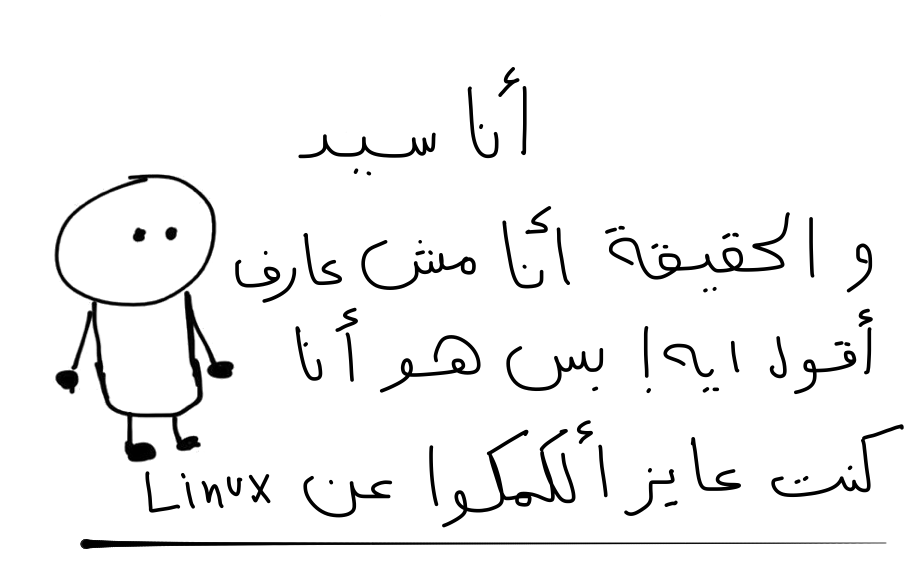 أنا سيد
و الحقيقة أنا مش عارف
أقول ايه! بس هو أنا
كنت عايز أكلمكوا عن Linux